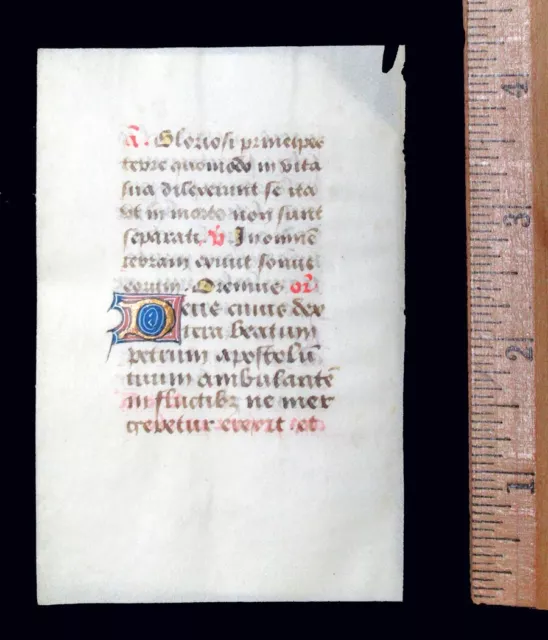 A. Gloriosi principes
terre quomodo in vita
sua dilexerunt se ita
Et in morte non sunt
separati. V. In omnē
terram exivit sonus
eorum. Oremus or
Deus cuius dex
tera beatum
petrum apostolū
tuum ambulantē
in fluctibꝫ ne mer
geretur erexit et
4
3
2
1